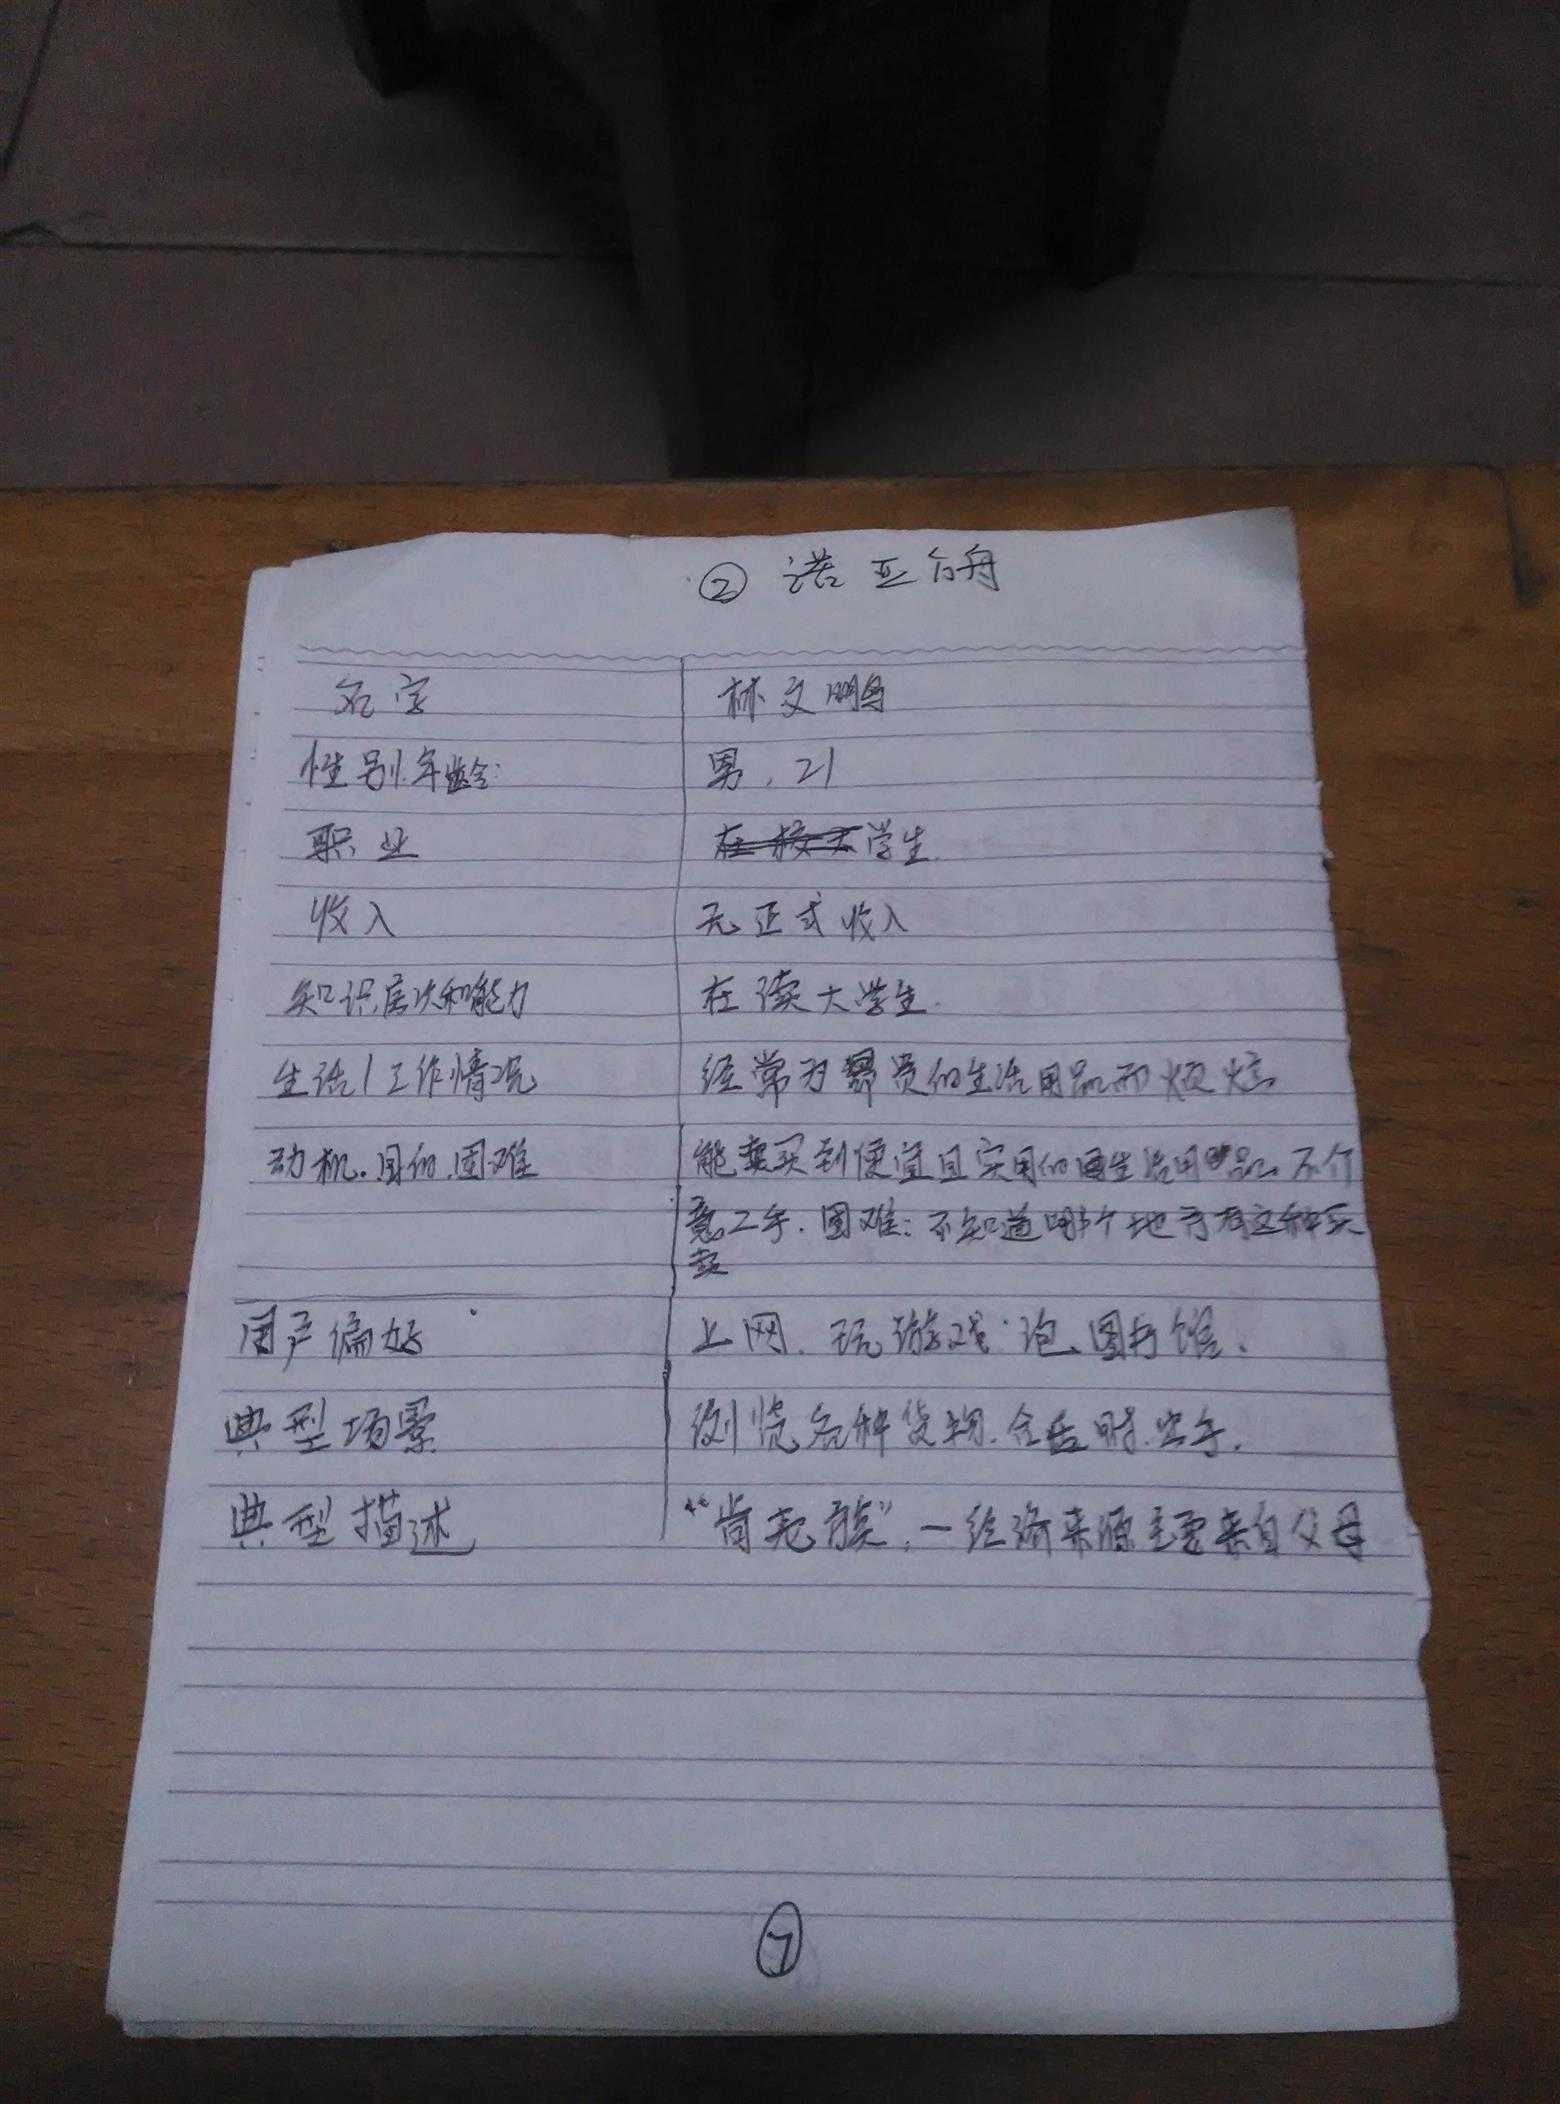 ② 诺亚方舟
名字 林文鹏
性别.年龄: 男.21
职业 学生.
收入 无正式收入
知识层次和能力 在读大学生.
生活/工作情况 经常为昂贵的生活用品而烦恼
动机.目的.困难 能买到便宜且实用的生活用品.不介
意二手.困难:不知道哪个地方有这种买
卖
用户偏好 上网.玩游戏.泡图书馆.
典型场景 浏览各种货物.合适时.出手.
典型描述 “啃老族”.—经济来源主要来自父母
⑦